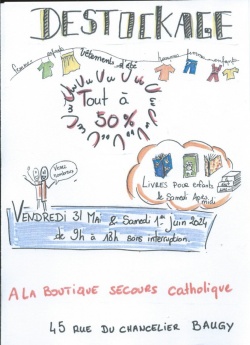 DESTOCKAGE
femme enfant vêtements d'été homme femme enfant
Tout à
50%
Venez
nombreux
LIVRES POUR Enfants
le Samedi Après
midi
VENDREDI 31 Mai & Samedi 1er Juin 2024
de 9h à 18h sans interruption.
A LA BOUTIQUE SECOURS Catholique
45 RUE DU CHANCELIER BAUGY